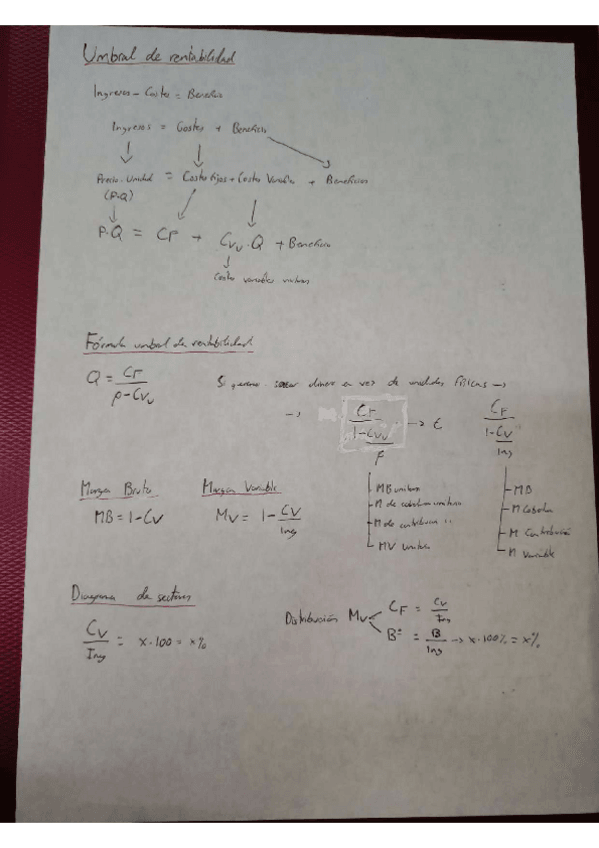 Umbral de rentabilidad
Ingresos - Costes = Beneficio
Ingresos = Costes + Beneficio
Precio · Unidad = Costes fijos + Costes Variables + Beneficios
(P·Q)
P·Q = CF + CVu·Q + Beneficio
Costes variables unitarios
Fórmula umbral de rentabilidad
Q = CF / P - CVu
Si queremos sacar dinero en vez de unidades físicas →
→ CF / 1 - CVu / P → €
CF / 1 - CV / Ing
Margen Bruto
MB = 1 - CV
Margen Variable
MV = 1 - CV / Ing
MB unitario
M de cobertura unitario
M de contribucion ''
MV unitario
MB
M Cobertura
M Contribución
M Variable
Diagrama de sectores
CV / Ing = x · 100 = x%
Distribución MV
CF = CV / Ing
Bº = B / Ing → x · 100% = x%